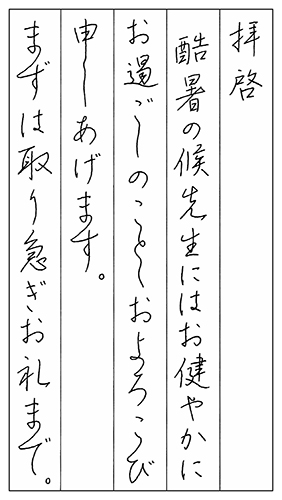 拝啓
酷暑の候先生にはお健やかに
お過ごしのことしおよろこび
申しあげます。
まずは取り急ぎお礼まで。